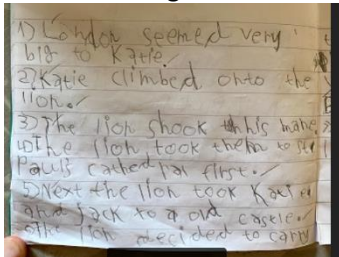 1) London seemed very
big to Katie.
2) Katie climbed onto the
lion.
3) The lion shook his mane.
4) The lion took them to St
Paul's cathedral first.
5) Next the lion took Katie
and Jack to a old castle.
The lion decided to carry